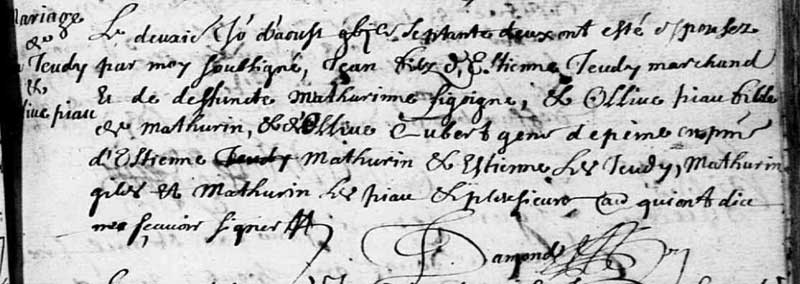 Mariage
de
Teudy
&
Olive piau
Le devxie Jo d'aoust gbjcs septante deux ont esté espousez
par moy soubsigné, Jean filz d'Estienne Teudy marchand
Et de deffuncte Mathurinne sigoigne, & Ollive piau fille
de Mathurin, & d'Ollive Tubert gens de peine en pnce
d'Estienne Mathurin & Estienne les Teudy, Mathurin
giles et Mathurin les piau & plusieurs qui ont dict
ne sçavoir signer
Damond